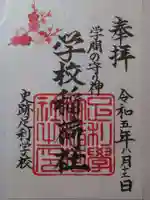 奉拝
令和五年八月十一日
学問の守り神
学校稲荷社
史跡足利学校